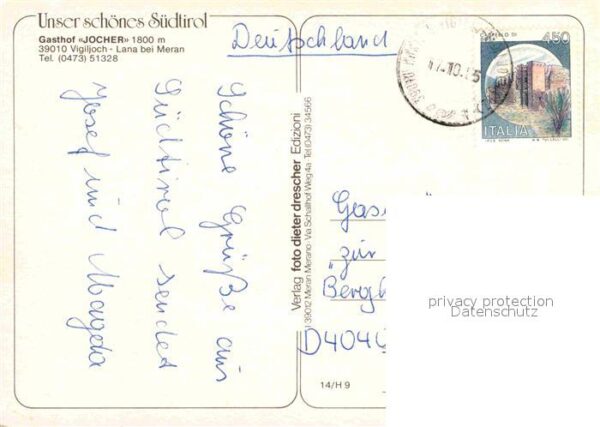 Unser schönes Südtirol
Gasthof «JOCHER» 1800 m
39010 Vigiljoch - Lana bei Meran
Tel. (0473) 51328
Schöne Grüße aus
Südtirol sendet
Josef und Magda
Deutschland
450
ITALIA
Verlag foto dieter drescher Edizioni
I 39012 Meran Merano · Via Schaffhof Weg 4a · Tel (0473) 34566
"zur
D404
14/H 9
privacy protection
Datenschutz